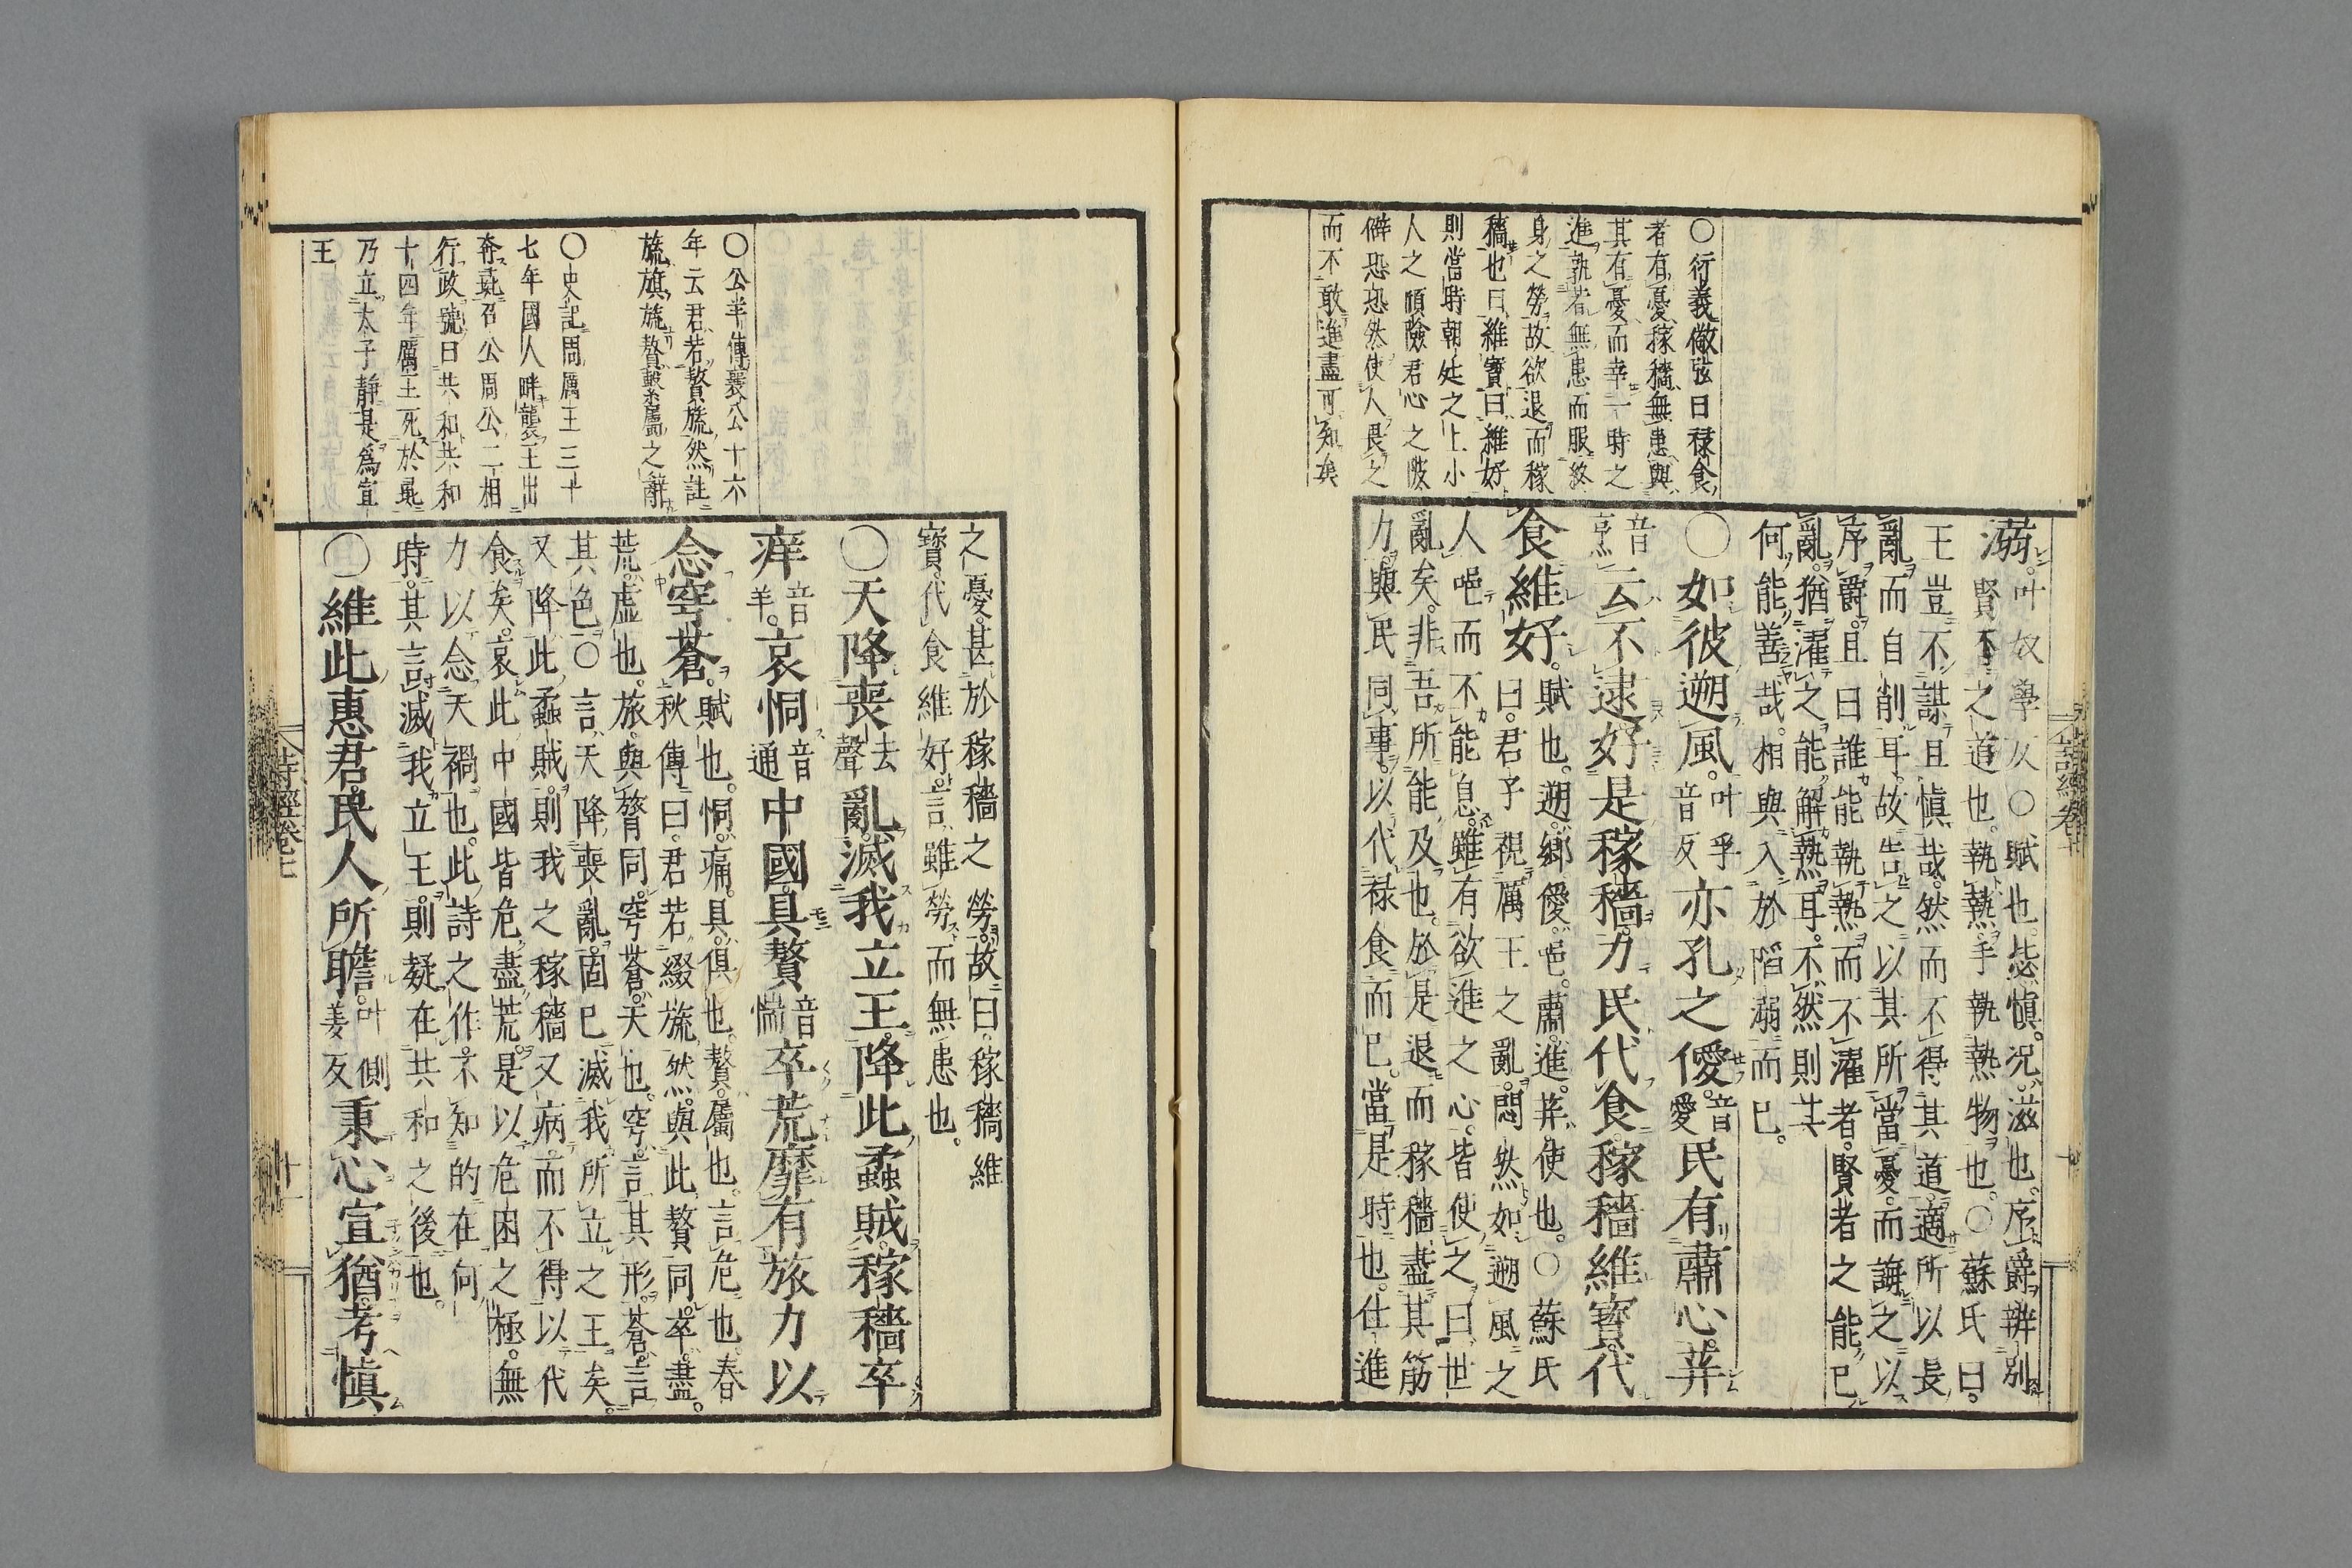 ○衍義敞弦曰祿食
者有憂稼穡無患與
其有憂而幸一時之
進孰若無患而服終
身之勞故欲退而稼
穡也曰維寶曰維好
則當時朝廷之上小
人之傾險君心之陂
僻恐恐然使人畏之
而不敢進盡可知矣
溺叶奴學反○賦也毖愼況滋也序爵辨別
賢否之道也執熱手執熱物也○蘇氏曰
王豈不謀且愼哉然而不得其道適所以長
亂而自削耳故告之以其所當憂而誨之以
序爵且曰誰能執熱而不濯者賢者之能已
亂猶濯之能解熱耳不然則其
何能善哉相與入於陷溺而已
○如彼遡風叶孚音反亦孔之僾音愛民有肅心荓
音烹云不逮好是稼穡力民代食稼穡維寶代
食維好賦也遡鄉僾唈肅進荓使也○蘇氏
曰君子視厲王之亂悶然如遡風之
人唈而不能息雖有欲進之心皆使之曰世
亂矣非吾所能及也於是退而稼穡盡其筋
力與民同事以代祿食而已當是時也仕進
詩經卷七
○公羊傳襄公十六
年云君若贅旒然註
旒旗旒贅繫屬之辭
○史記周厲王三十
七年國人畔襲王出
奔彘召公周公二相
行政號曰共和共和
十四年厲王死於彘
乃立太子靜是爲宣
王
之憂甚於稼穡之勞故曰稼穡維
寶代食維好言雖勞而無患也
○天降喪去聲亂滅我立王降此蟊賊稼穡卒
痒音羊哀恫音通中國具贅音惴卒荒靡有旅力以
念穹蒼賦也恫痛具俱也贅屬也言危也春
秋傳曰君若綴旒然與此贅同卒盡
荒虛也旅與膂同穹蒼天也穹言其形蒼言
其色○言天降喪亂固已滅我所立之王矣
又降此蟊賊則我之稼穡又病而不得以代
食矣哀此中國皆危盡荒是以危困之極無
力以念天禍也此詩之作不知的在何
時其言滅我立王則疑在共和之後也
○維此惠君民人所瞻叶側姜反秉心宣猶考愼
詩經卷七
十一